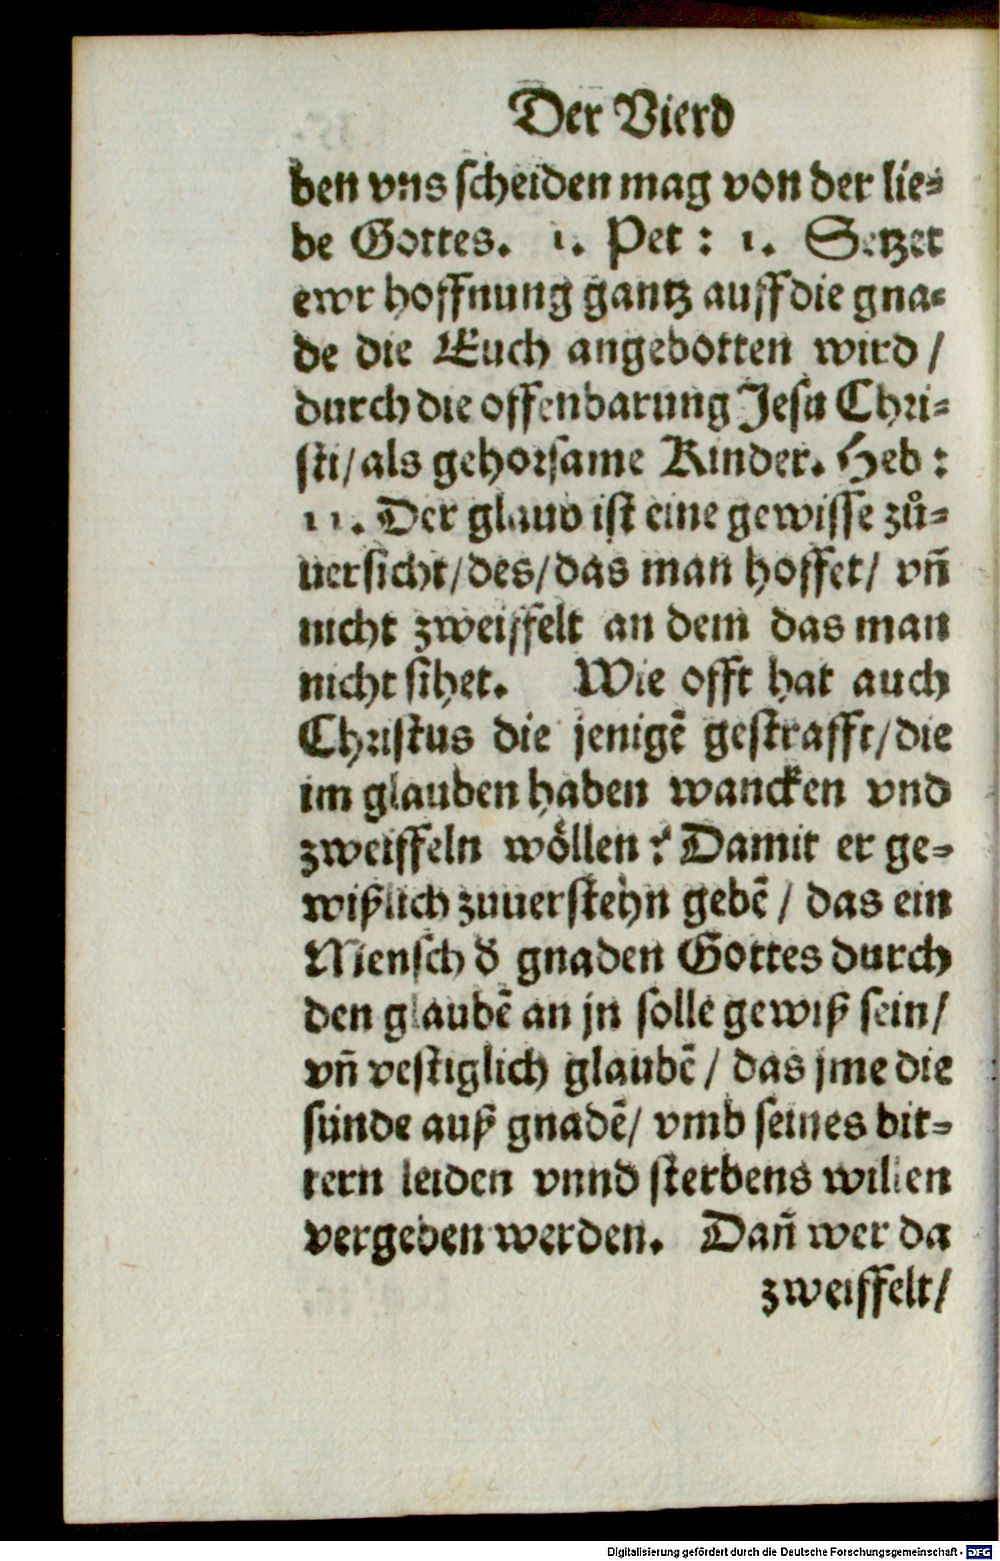 Der Vierd
ben vns scheiden mag von der lie⸗
be Gottes. 1. Pet: 1. Setzet
ewr hoffnung gantz auff die gna⸗
de die Euch angebotten wird/
durch die offenbarung Jesu Chri⸗
sti/als gehorsame Kinder. Heb:
11. Der glaub ist eine gewisse zů⸗
uersicht/des/das man hoffet/ vñ
nicht zweiffelt an dem das man
nicht sihet. Wie offt hat auch
Christus die jenigẽ gestrafft/die
im glauben haben wancken vnd
zweiffeln wöllen? Damit er ge⸗
wißlich zuuerstehn gebẽ/ das ein
Mensch d̕ gnaden Gottes durch
den glaubẽ an jn solle gewiß sein/
vñ vestiglich glaubẽ/ das jme die
sünde auß gnadẽ/ vmb seines bit⸗
tern leiden vnnd sterbens willen
vergeben werden. Dañ wer da
zweiffelt/
Digitalisierung gefördert durch die Deutsche Forschungsgemeinschaft - DFG